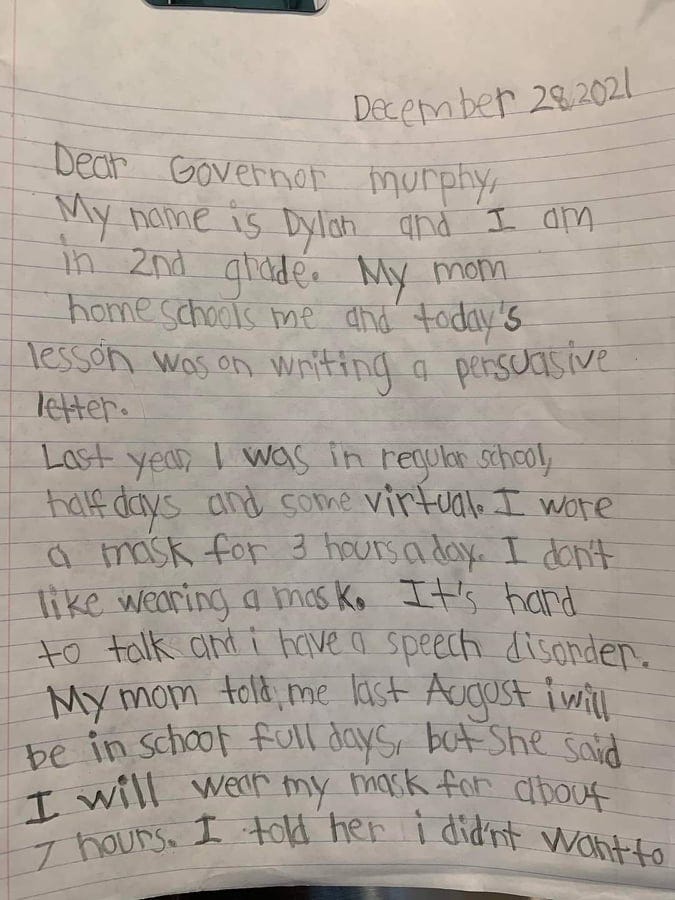 December 28,2021
Dear Governor murphy,
My name is Dylan and I am
in 2nd grade. My mom
homeschools me and today's
lesson was on writing a persuasive
letter.
Last year, I was in regular school,
half days and some virtual. I wore
a mask for 3 hours a day. I don't
like wearing a mask. It's hard
to talk and i have a speech disorder.
My mom told me last August i will
be in school full days, but she said
I will wear my mask for about
7 hours. I told her i didn't want to